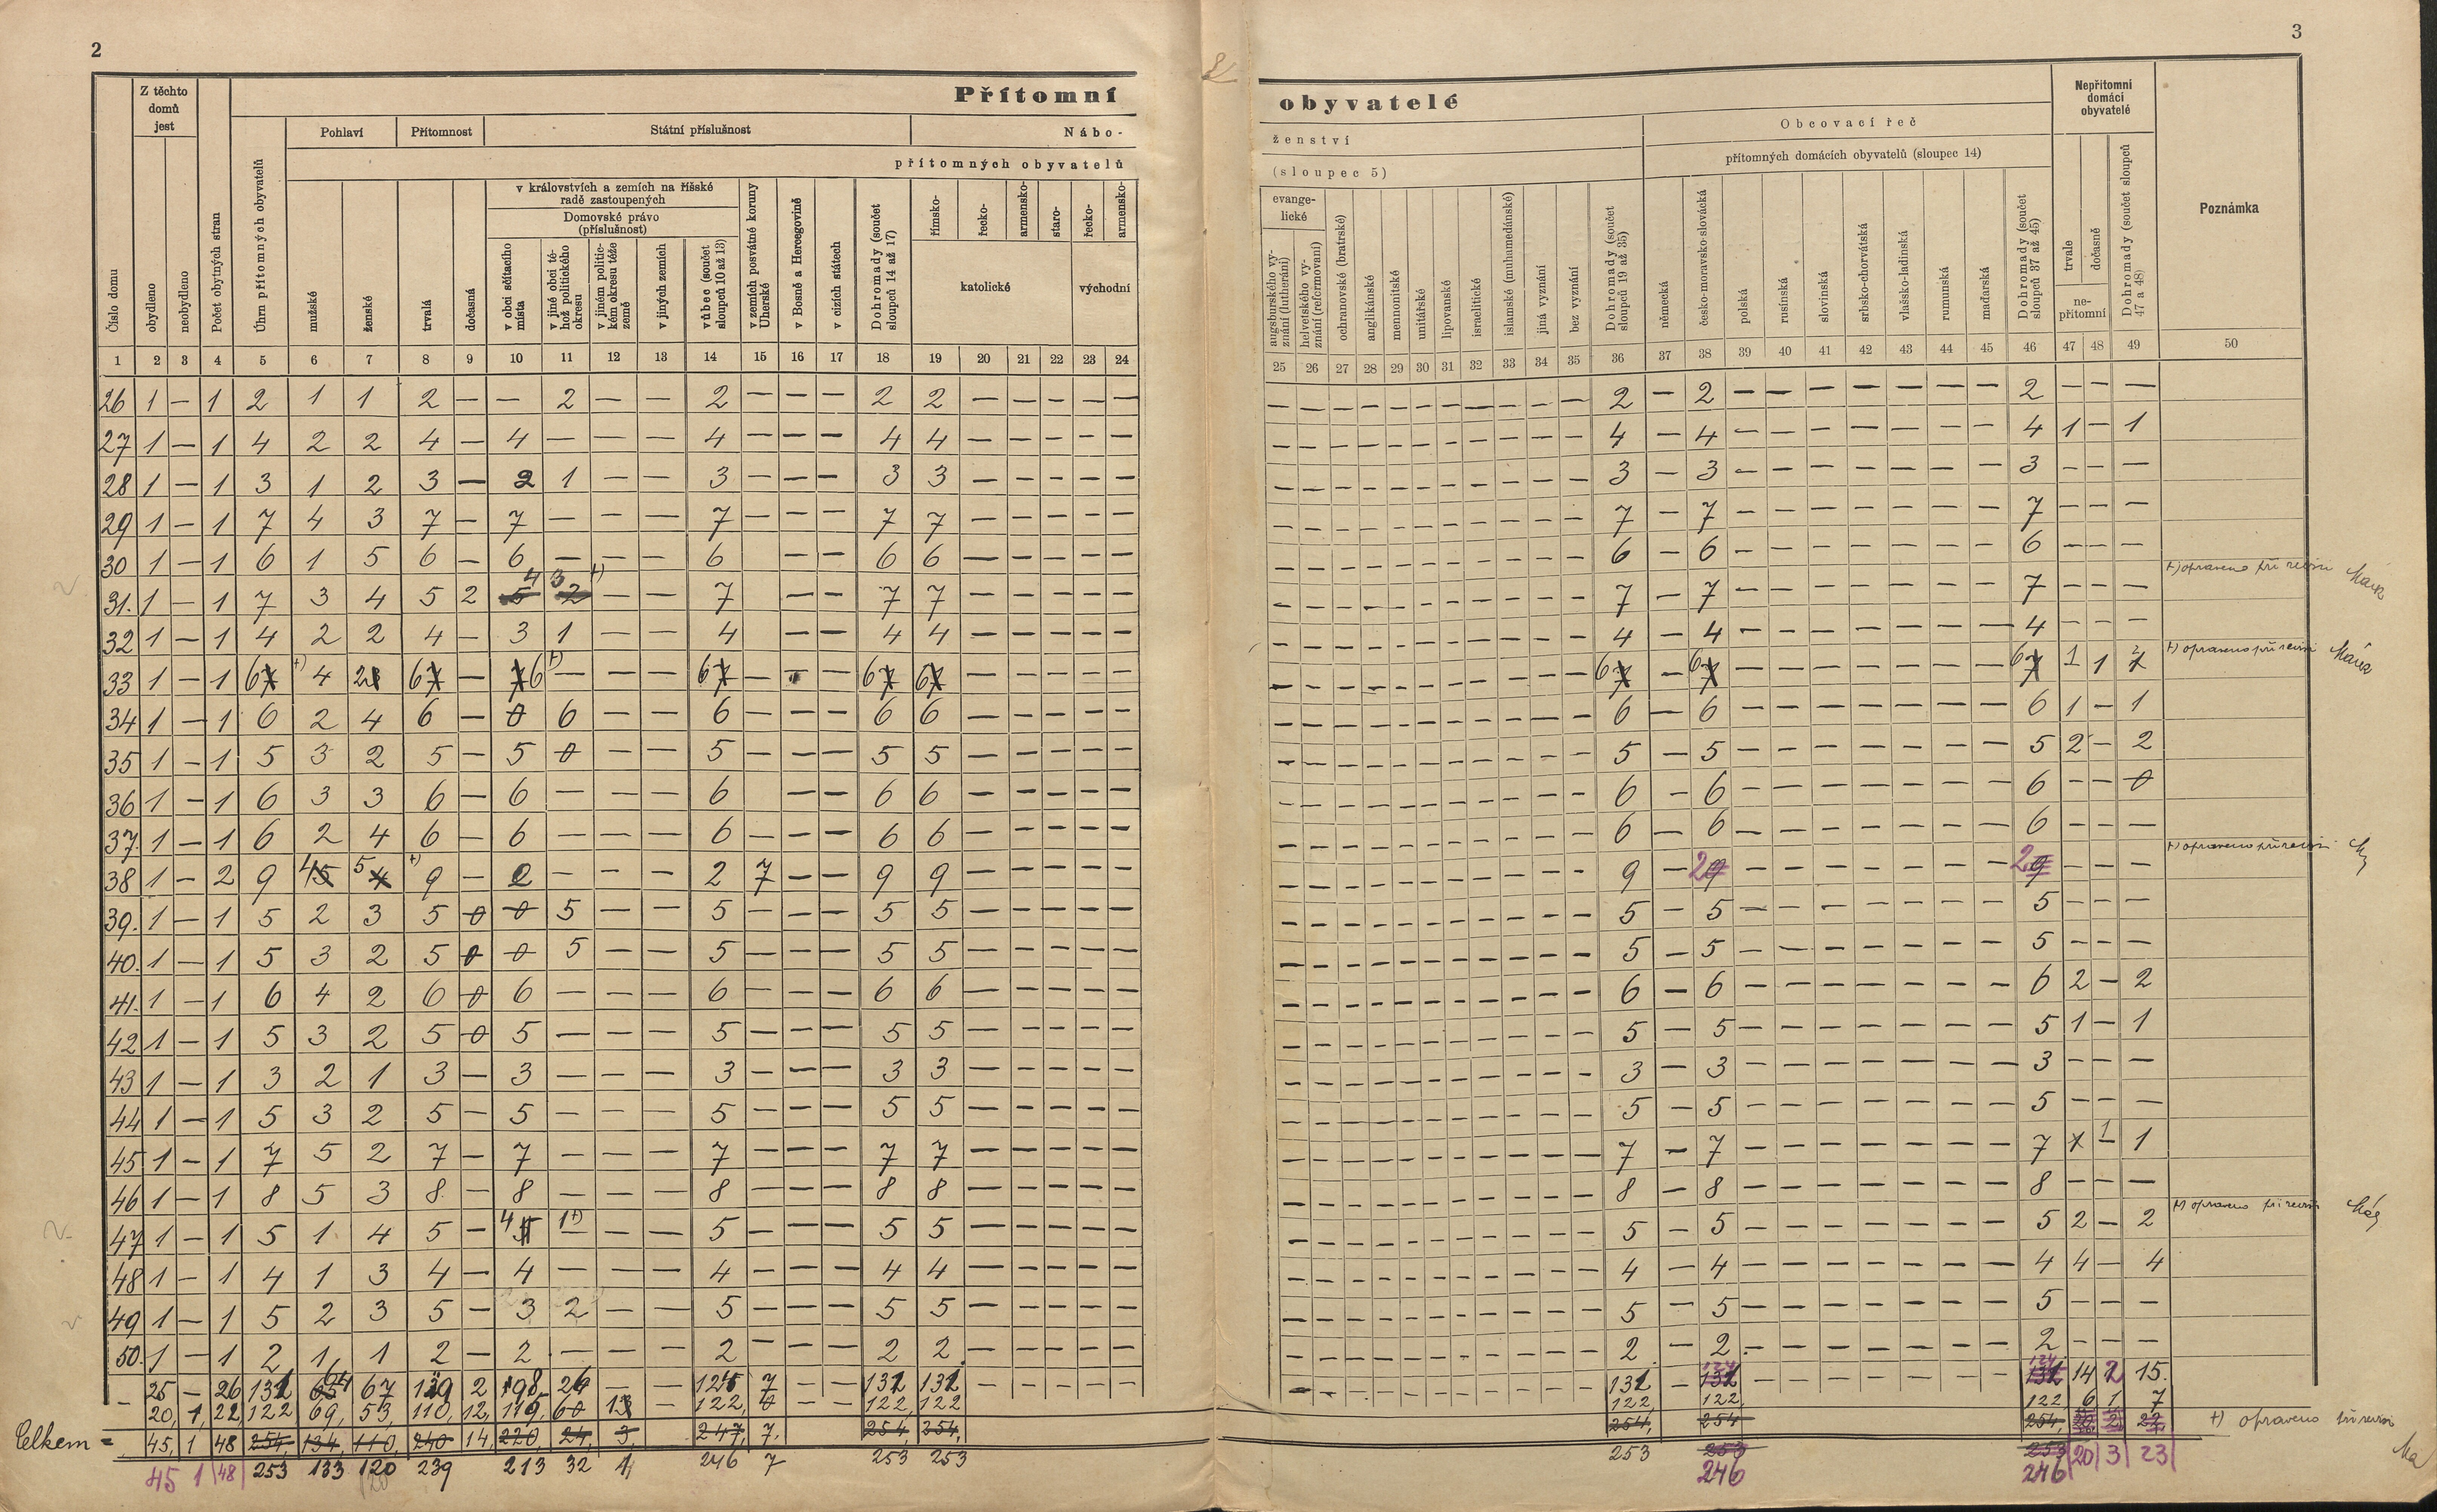 2
3
Přítomní obyvatelé
Z těchto domů jest
Pohlaví
Přítomnost
Státní příslušnost
Nábo-
ženství
Obcovací řeč
Nepřítomní domácí obyvatelé
přítomných obyvatelů
(sloupec 5)
přítomných domácích obyvatelů (sloupec 14)
Číslo domu
obydleno
neobydleno
Počet obytných stran
Úhrn přítomných obyvatelů
mužské
ženské
trvalá
dočasná
v královstvích a zemích na říšské radě zastoupených
Domovské právo (příslušnost)
v obci sčítacího místa
v jiné obci téhož politického okresu
v jiném politickém okresu téže země
v jiných zemích
vůbec (součet sloupců 10 až 13)
v zemích posvátné koruny Uherské
v Bosně a Hercegovině
v cizích státech
Dohromady (součet sloupců 14 až 17)
římsko-
řecko-
armensko-
staro-
katolické
řecko-
armensko-
východní
evangelické
augsburského vyznání (lutheráni)
helvetského vyznání (reformovaní)
ochranovské (bratrské)
anglikánské
mennonitské
unitářské
lipovanské
israelitické
islamské (muhamedánské)
jiná vyznání
bez vyznání
Dohromady (součet sloupců 19 až 35)
německá
česko-moravsko-slovácká
polská
rusínská
slovinská
srbsko-chorvátská
vlašsko-ladinská
rumunská
maďarská
Dohromady (součet sloupců 37 až 45)
trvale
dočasně
nepřítomní
Dohromady (součet sloupců 47 a 48)
Poznámka
1 2 3 4 5 6 7 8 9 10 11 12 13 14 15 16 17 18 19 20 21 22 23 24 25 26 27 28 29 30 31 32 33 34 35 36 37 38 39 40 41 42 43 44 45 46 47 48 49 50
26 1 – 1 2 1 1 2 – – 2 – – 2 – – – 2 2 – – – – – – – – – – – – – – – – 2 – 2 – – – – – – – 2 – – –
27 1 – 1 4 2 2 4 – 4 – – – 4 – – – 4 4 – – – – – – – – – – – – – – – – 4 – 4 – – – – – – – 4 1 – 1
28 1 – 1 3 1 2 3 – 2 1 – – 3 – – – 3 3 – – – – – – – – – – – – – – – – 3 – 3 – – – – – – – 3 – – –
29 1 – 1 7 4 3 7 – 7 – – – 7 – – – 7 7 – – – – – – – – – – – – – – – – 7 – 7 – – – – – – – 7 – – –
30 1 – 1 6 1 5 6 – 6 – – – 6 – – 6 6 – – – – – – – – – – – – – – – – 6 – 6 – – – – – – – 6 – – –
31. 1 – 1 7 3 4 5 2 5 4 2 3 +) – – 7 – – 7 7 – – – – – – – – – – – – – – – – 7 – 7 – – – – – – – 7 – – – +) opraveno při revisi
32 1 – 1 4 2 2 4 – 3 1 – – 4 – – 4 4 – – – – – – – – – – – – – – – – 4 – 4 – – – – – – – 4 – – –
33 1 – 1 6 7 +) 4 2 3 6 7 – 7 6 +) – – – 6 7 – – – 6 7 6 7 – – – – – – – – – – – – – – – – 6 7 – 6 7 – – – – – – – 6 7 1 1 2 +) opraveno při revisi
34 1 – 1 6 2 4 6 – 0 6 – – 6 – – – 6 6 – – – – – – – – – – – – – – – – 6 – 6 – – – – – – – 6 1 – 1
35 1 – 1 5 3 2 5 – 5 0 – – 5 – – – 5 5 – – – – – – – – – – – – – – – – 5 – 5 – – – – – – – 5 2 – 2
36 1 – 1 6 3 3 6 – 6 – – – 6 – – 6 6 – – – – – – – – – – – – – – – – 6 – 6 – – – – – – – 6 – – 0
37. 1 – 1 6 2 4 6 – 6 – – – 6 – – – 6 6 – – – – – – – – – – – – – – – – 6 – 6 – – – – – – – 6 – – –
38 1 – 2 9 4 5 5 4 +) 9 – 2 – – – 2 7 – – 9 9 – – – – – – – – – – – – – – – – 9 – 2 9 – – – – – – – 2 9 – – – +) opraveno při revisi
39. 1 – 1 5 2 3 5 0 0 5 – – 5 – – – 5 5 – – – – – – – – – – – – – – – – 5 – 5 – – – – – – – 5 – – –
40. 1 – 1 5 3 2 5 0 0 5 – – 5 – – – 5 5 – – – – – – – – – – – – – – – – 5 – 5 – – – – – – – 5 – – –
41. 1 – 1 6 4 2 6 0 6 – – – 6 – – – 6 6 – – – – – – – – – – – – – – – – 6 – 6 – – – – – – – 6 2 – 2
42 1 – 1 5 3 2 5 0 5 – – – 5 – – – 5 5 – – – – – – – – – – – – – – – – 5 – 5 – – – – – – – 5 1 – 1
43 1 – 1 3 2 1 3 – 3 – – – 3 – – – 3 3 – – – – – – – – – – – – – – – – 3 – 3 – – – – – – – 3 – – –
44 1 – 1 5 3 2 5 – 5 – – – 5 – – – 5 5 – – – – – – – – – – – – – – – – 5 – 5 – – – – – – – 5 – – –
45 1 – 1 7 5 2 7 – 7 – – – 7 – – – 7 7 – – – – – – – – – – – – – – – – 7 – 7 – – – – – – – 7 1 1 1
46 1 – 1 8 5 3 8 – 8 – – – 8 – – – 8 8 – – – – – – – – – – – – – – – – 8 – 8 – – – – – – – 8 – – –
47 1 – 1 5 1 4 5 – 4 5 1 +) – – 5 – – – 5 5 – – – – – – – – – – – – – – – – 5 – 5 – – – – – – – 5 2 – 2 +) opraveno při revisi
48 1 – 1 4 1 3 4 – 4 – – – 4 – – – 4 4 – – – – – – – – – – – – – – – – 4 – 4 – – – – – – – 4 4 – 4
49 1 – 1 5 2 3 5 – 3 2 – – 5 – – – 5 5 – – – – – – – – – – – – – – – – 5 – 5 – – – – – – – 5 – – –
50. 1 – 1 2 1 1 2 – 2 – – – 2 – – – 2 2 – – – – – – – – – – – – – – – – 2 – 2 – – – – – – – 2 – – –
25 – 26 131 64 67 129 2 98 26 – – 124 7 – – 131 131 131 124 124 14 2 15.
20, 1, 22, 122, 69, 53, 110, 12, 115, 122, 0 – – 122, 122 122, 122, 122 6 1 7
Celkem = 45, 1 48 254, 134, 110, 240 14, 220, 24, 3, 247, 7. 254, 254, 254, 254 254, 22 +) opraveno při revisi
45 1 48 253 133 120 239 213 32 1, 246 7 253 253 253 253 253 20 3 23
120 246 246